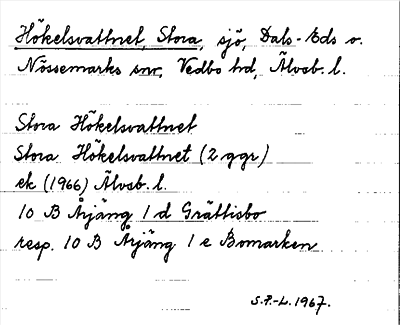 Hökelsvattnet, Stora, sjö, Dals-Eds o.
Nössemarks snr, Vedbo hd, Älvsb. l.
Stora Hökelsvattnet
Stora Hökelsvattnet (2 ggr)
ek (1966) Älvsb. l.
10 B Årjäng 1 d Grättisbo
resp. 10 B Årjäng 1 e Bomarken
S.F.-L. 1967.